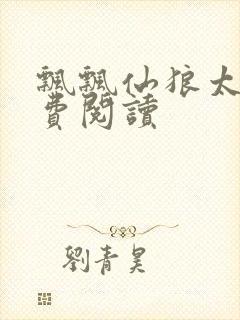 飄飄仙狼太
費閱讀
劉青昊